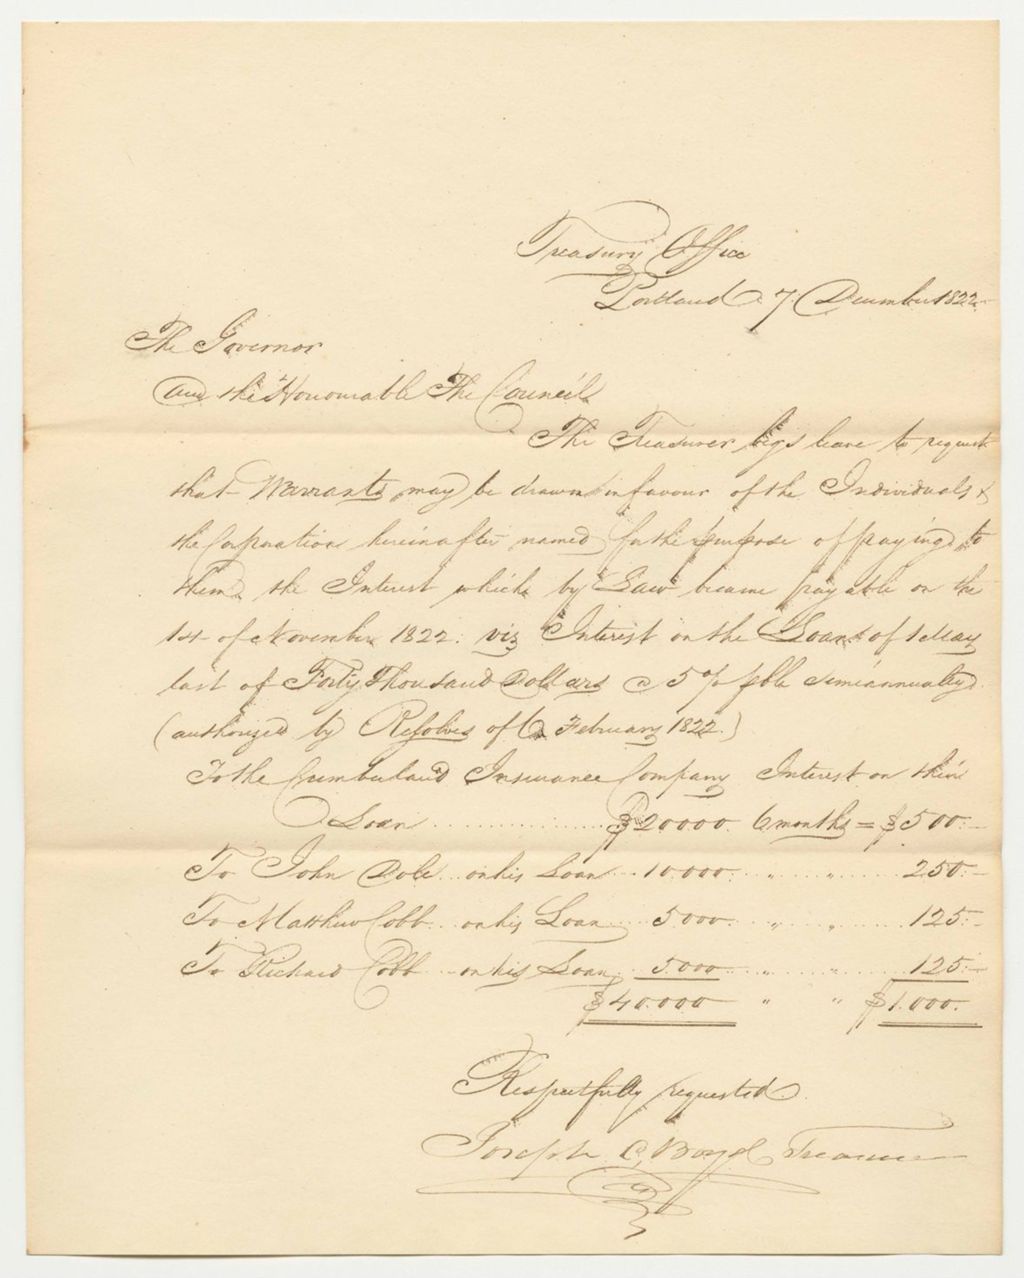 Treasury Office
Portland 7 December 1822
The Governor
and the Honourable The Council
The Treasurer begs leave to request
that Warrants may be drawn in favour of the Individuals &
the Corporation hereinafter named for the purpose of paying to
them the Interest which by Law became payable on the
1st of November 1822: viz Interest on the Loans of 1 May
last of Forty Thousand Dollars a 5 % pble semiannually
(authorized by Resolves of February 1822.)
To the Cumberland Insurance Company Interest on their
Loan .................... $20000. 6 months = $500.-
To John Dole... on his Loan... 10.000. " " ...... 250.-
To Matthew Cobb... on his Loan.... 5000. " " ...... 125.-
To Richard Cobb... on his Loan... 5.000 " " ...... 125.-
$40.000 " " $1.000.
Respectfully requested
Joseph C. Boyd Treasurer